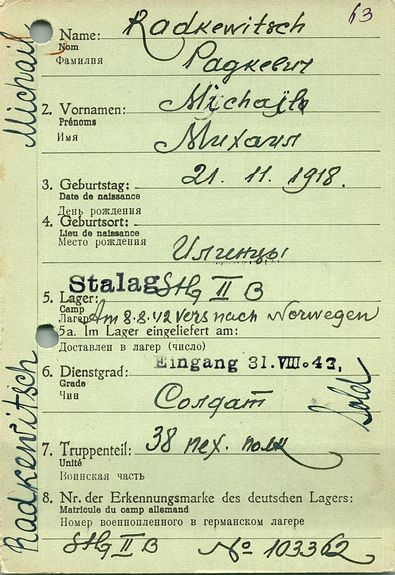 63
Name: Radkewitsch
Nom
Фамилия Радкевич
2. Vornamen: Michajlo
Prénoms
Имя Михаил
3. Geburtstag: 21. 11. 1918.
Date de naissance
День рождения
4. Geburtsort:
Lieu de naissance
Место рождения
Илинцы
Stalag Stlg II B
5. Lager:
Camp
Лагерь Am 8.8.42 vers nach Norwegen
5a. Im Lager eingeliefert am:
Доставлен в лагерь (число)
Eingang 31. VIII. 43.
6. Dienstgrad:
Grade
Чин Солдат
Sold
7. Truppenteil: 38 пех. полк
Unité
Воинская часть
8. Nr. der Erkennungsmarke des deutschen Lagers:
Matricule du camp allemand
Номер военнопленного в германском лагере
Stlg II B № 103362
Radkewitsch Michail